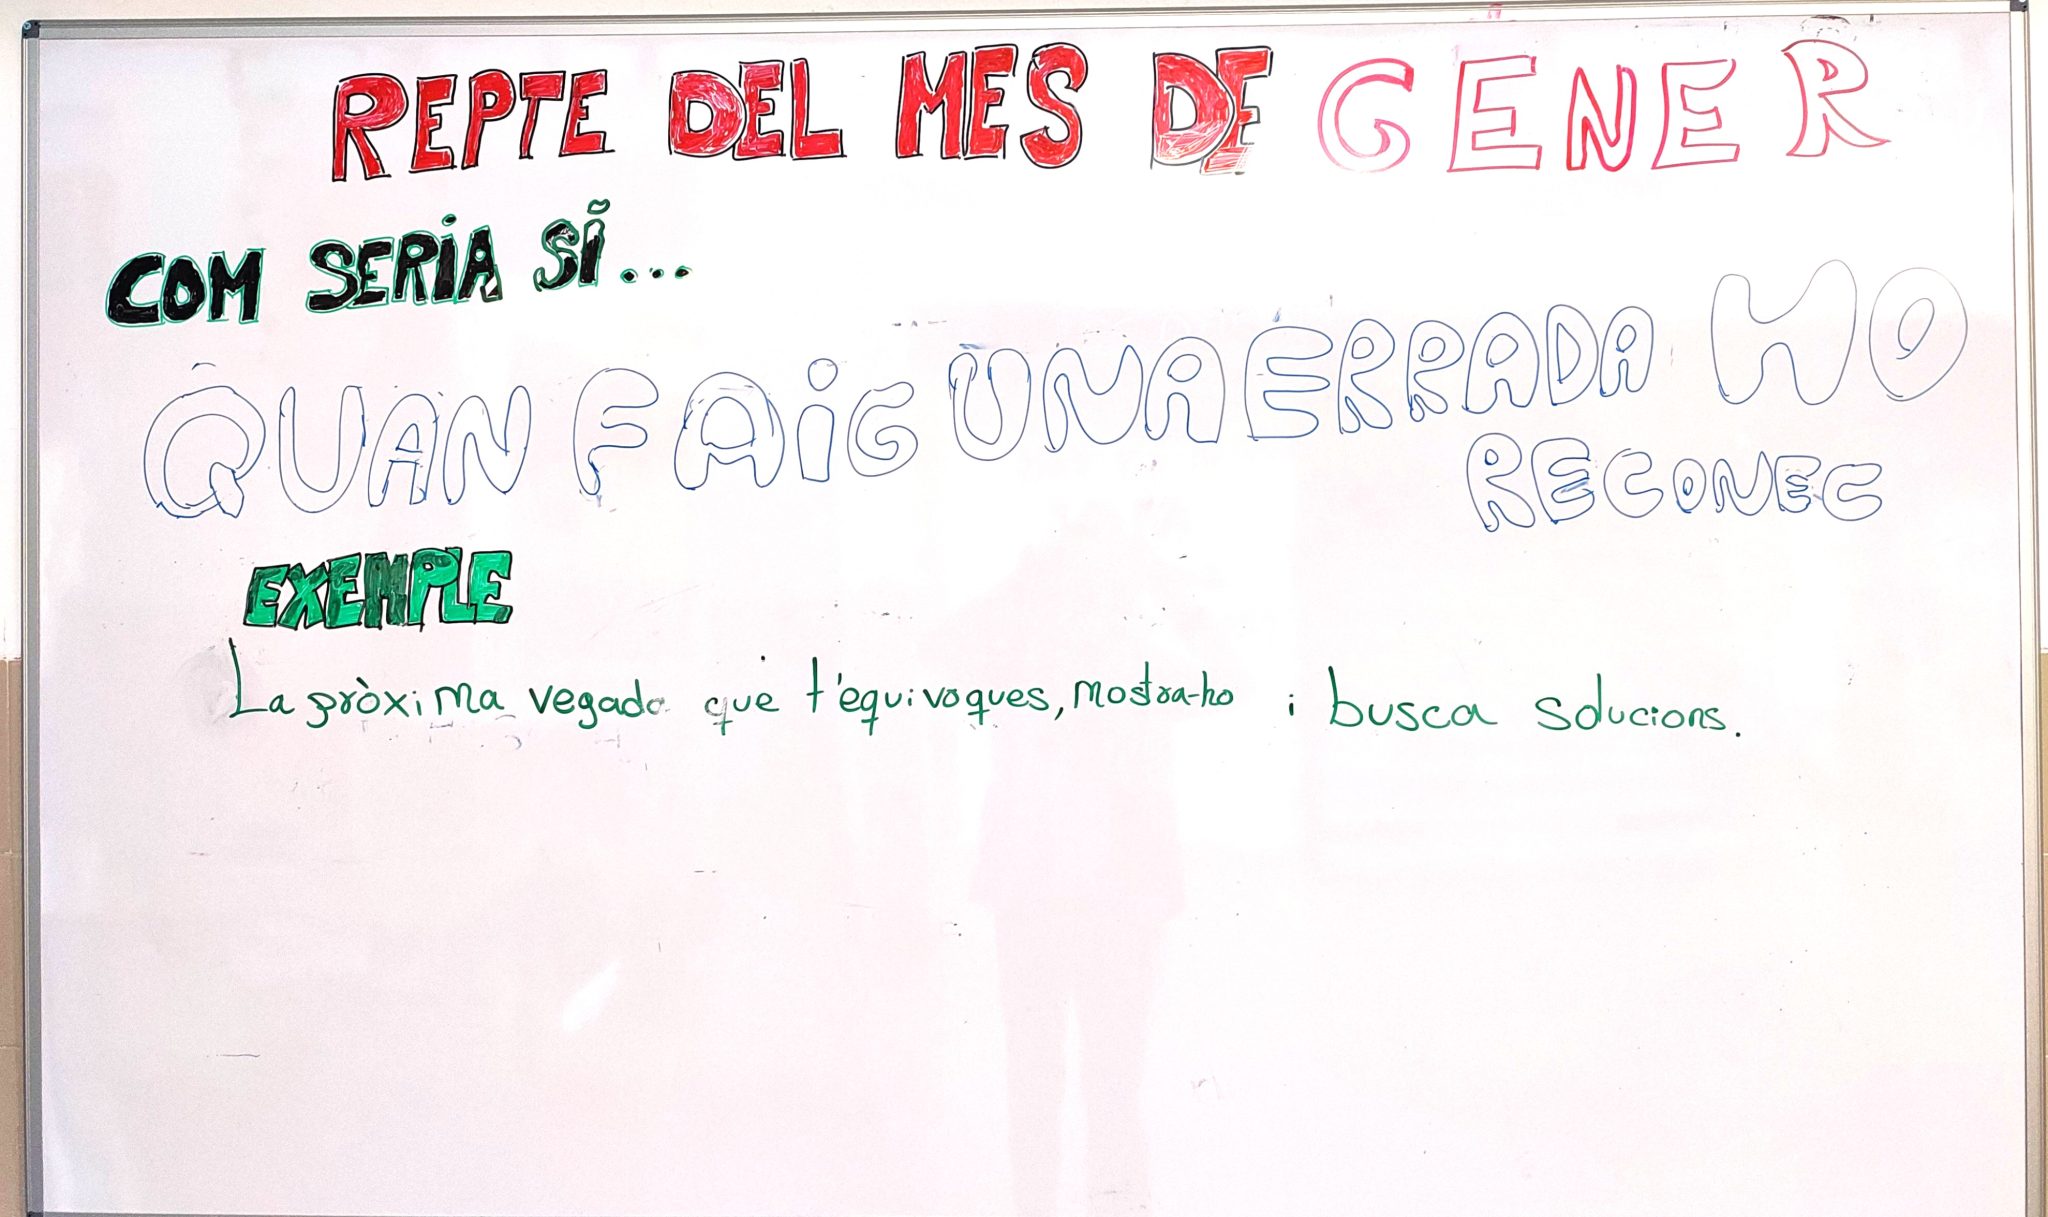 REPTE DEL MES DE GENER
COM SERIA SI...
QUAN FAIG UNA ERRADA HO
RECONEC
EXEMPLE
La pròxima vegada que t'equivoques, mostra-ho i busca solucions.